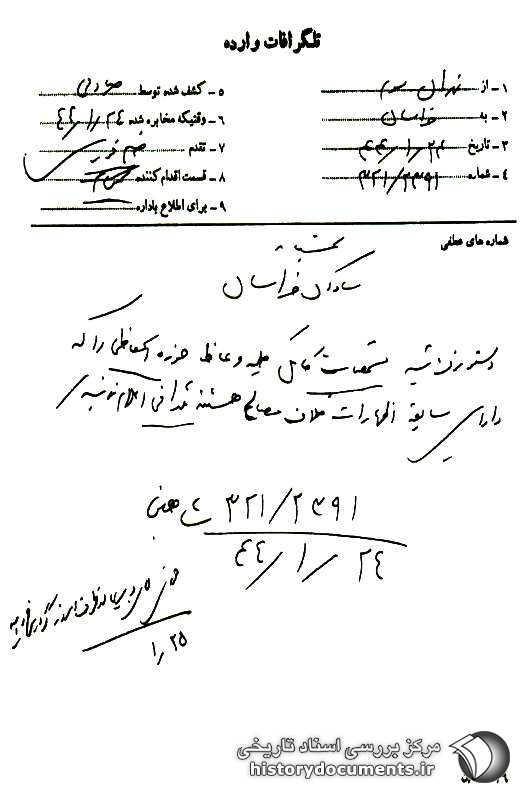 تلگرافات وارده
۱ - از تهران سوم
۲ - به خراسان
۳ - تاریخ ۴۴/۱/۲۴
۴ - شماره ۳۲۱/۲۳۹۱
۵ - کشف شده توسط
۶ - وقتیکه مخابره شده ۴۴/۱/۲۴
۷ - تقدم
۸ - قسمت اقدام کننده
۹ - برای اطلاع باداره
شماره های عطفی
ساواک خراسان
دستور فرمائید مشخصات کامل کلیه وعاظ حوزه استحفاظی را که
دارای سابقه اظهارات خلاف مصالح هستند تلگرافی اعلام نمایند
۳۲۱/۲۳۹۱
۴۴/۱/۲۴
۱/۲۵
مرکز بررسی اسناد تاریخی
historydocuments.ir